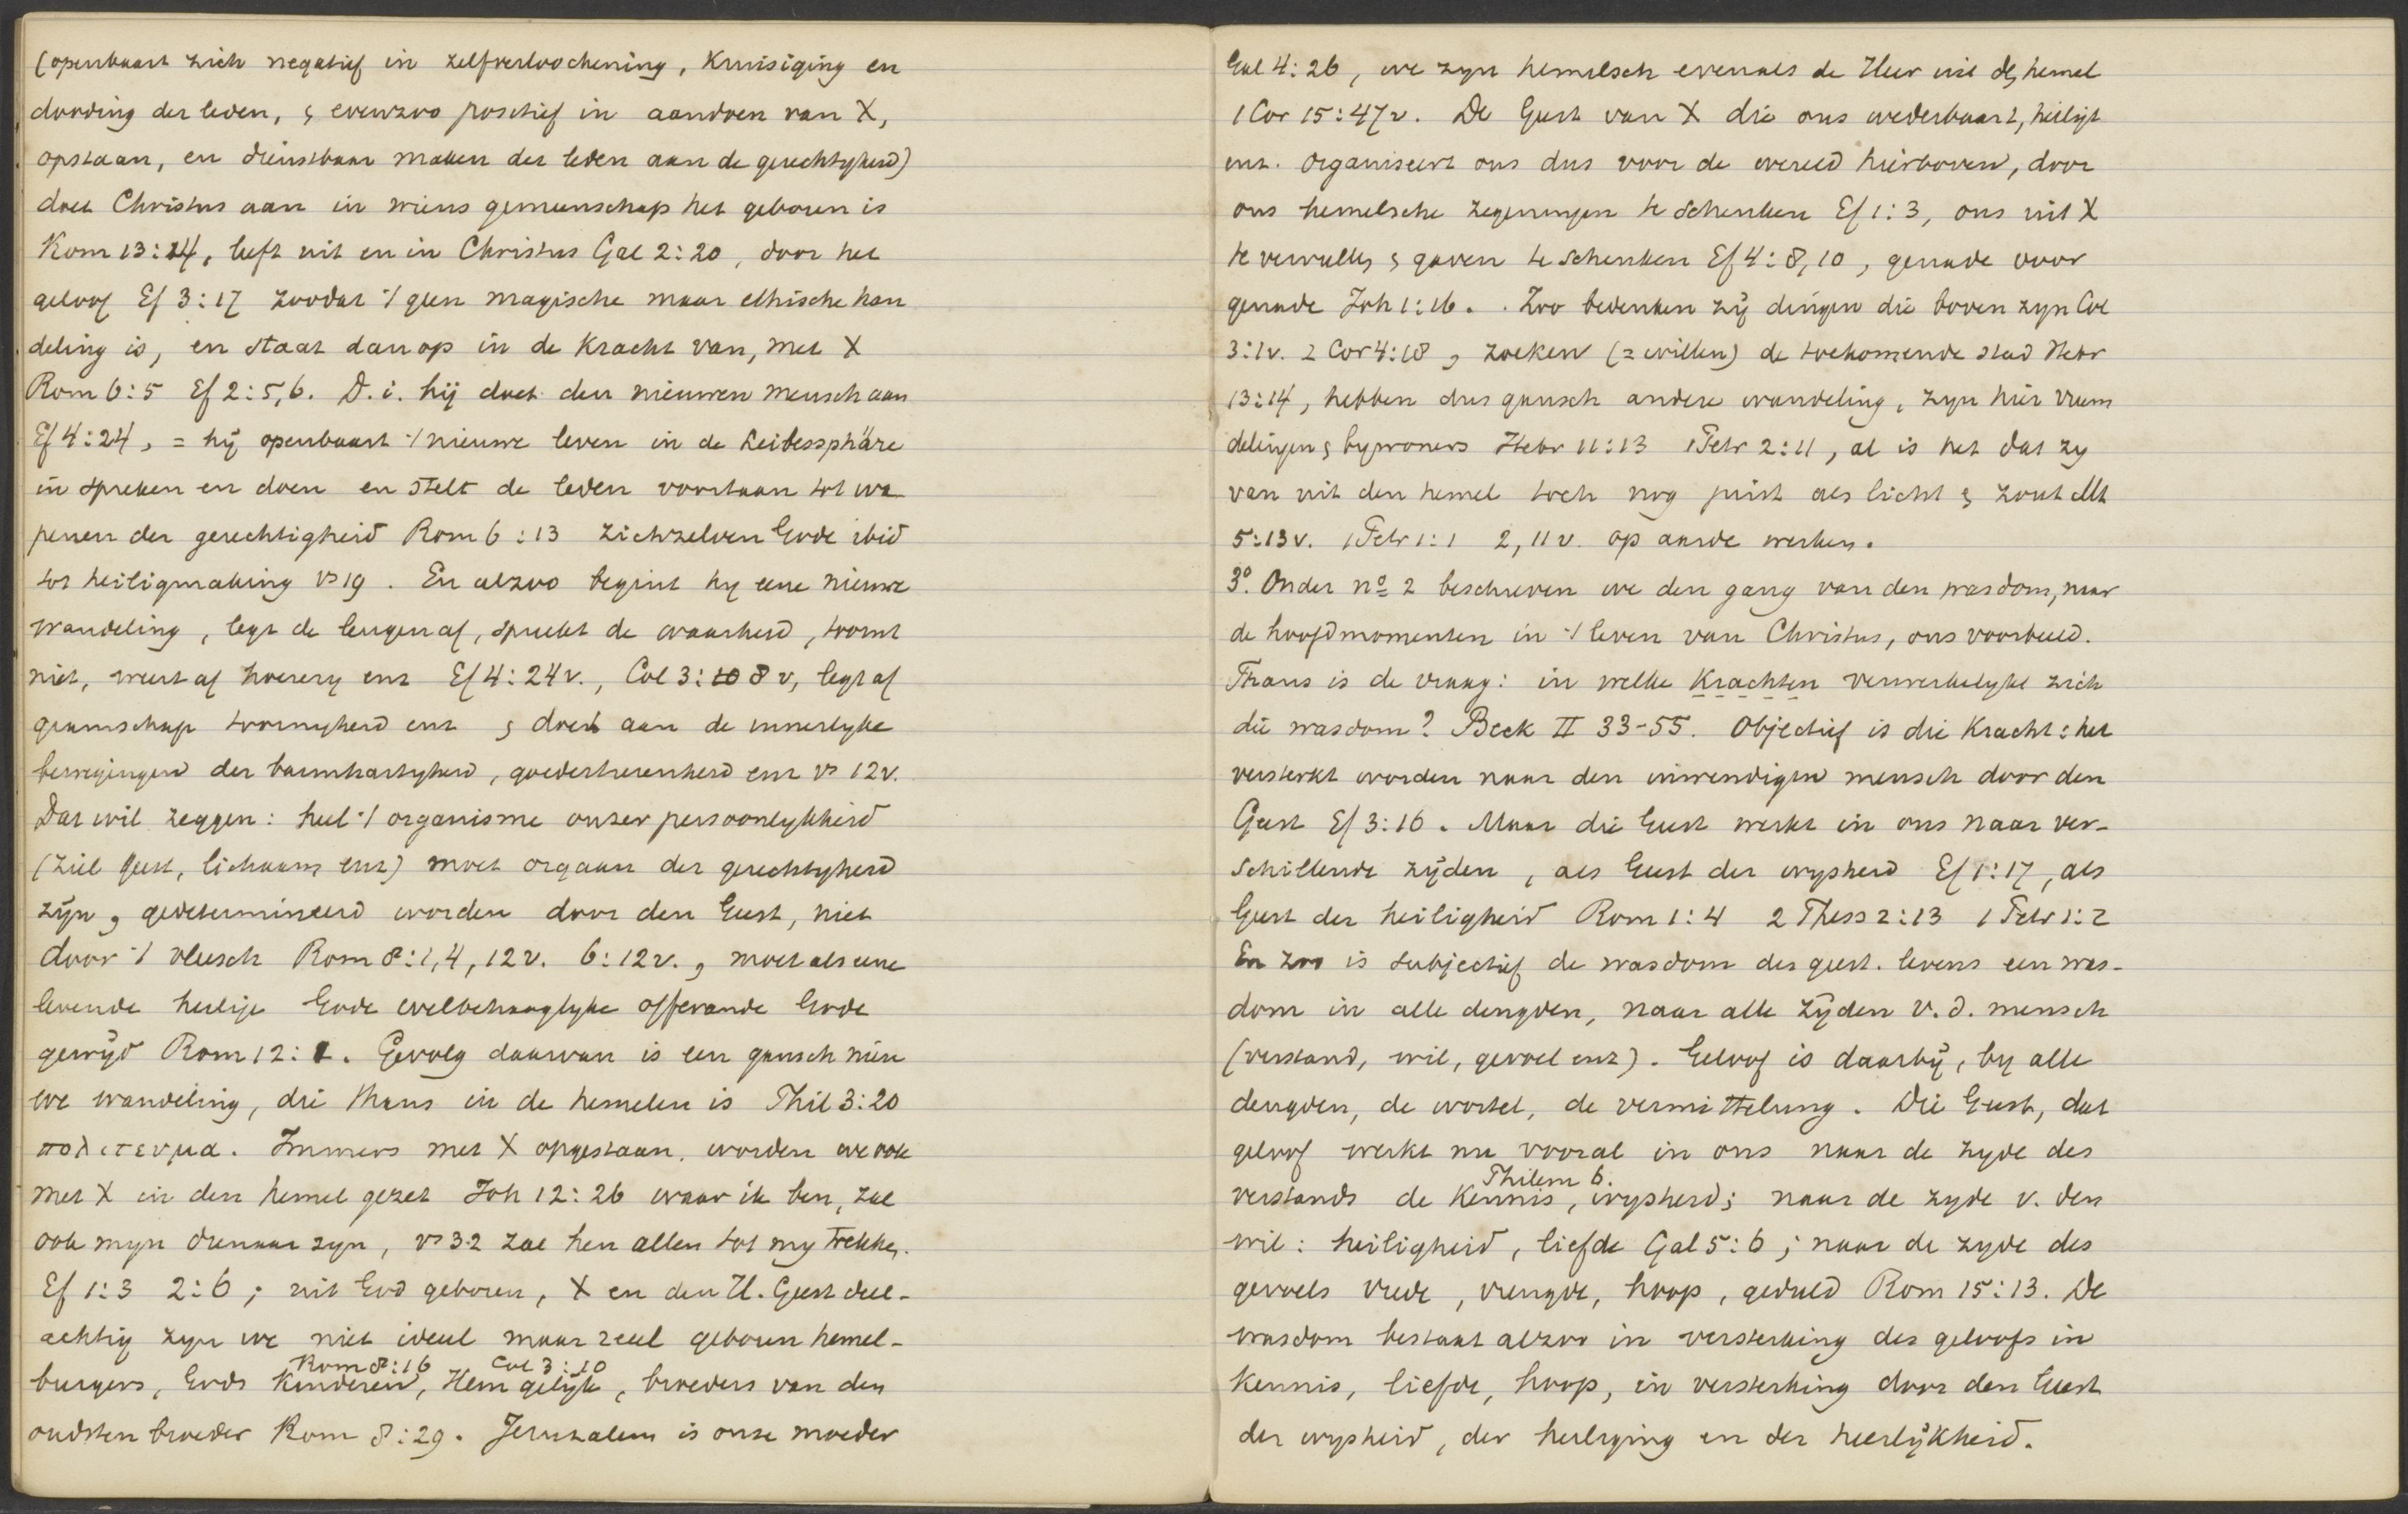 (openbaart zich negatief in zelfverloochening, Kruisiging en
dooding der leden, & evenzoo positief in aandoen van X,
opstaan, en dienstbaar maken der leden aan de gerechtigheid)
doet Christus aan in wiens gemeenschap het geboren is
Rom 13:14, leeft uit en in Christus Gal 2:20, door het
geloof Ef 3:17 zoodat 't geen magische maar ethische han
deling is, en staat dan op in de Kracht van, met X
Rom 6:5 Ef 2:5,6. D.i. hij doet den nieuwen mensch aan
Ef 4:24, = hij openbaart 't nieuwe leven in de Leibessphäre
in spreken en doen en stelt de leden voortaan tot wa
penen der gerechtigheid Rom 6:13 zichzelven Gode ibid
tot heiligmaking vs 19. En alzoo begint hy eene nieuwe
wandeling, legt de leugen af, spreekt de waarheid, toornt
niet, weert af hoerery enz Ef 4:24v., Col 3:10 8 v, legt af
gramschap toornigheid enz & doet aan de innerlyke
bewegingen der barmhartigheid, goedertierenheid enz vs 12v.
Dat wil zeggen: heel 't organisme onzer persoonlykheid
(ziel geest, lichaam enz) moet orgaan der gerechtigheid
zijn, gedetermineerd worden door den Geest, niet
door 't vleesch Rom 8:1,4,12v. 6:12v., moet als eene
levende heilige Gode welbehaaglyke offerande Gode
gewijd Rom 12:1. Gevolg daarvan is een gansch nieu
we wandeling, die thans in de hemelen is Phil 3:20
πολιτευμα. Immers met X opgestaan, worden we ook
met X in den hemel gezet Joh 12:26 waar ik ben, zal
ook myn dienaar zyn, vs 32 zal hen allen tot my trekken.
Ef 1:3 2:6; uit God geboren, X en den H. Geest deel-
achtig zyn we niet ideeel maar reeel geboren hemel-
Rom 8:16 Col 3:10
burgers, Gods Kinderen, Hem gelijk, broeders van den
oudsten broeder Rom 8:29. Jeruzalem is onze moeder
Gal 4:26, we zyn hemelsch evenals de Heer uit den hemel
1 Cor 15:47v. De Geest van X die ons wederbaart, heiligt
enz. organiseert ons dus voor de wereld hierboven, door
ons hemelsche zegeningen te schenken Ef 1:3, ons uit X
te vervullen & gaven te schenken Ef 4:8,10, genade voor
genade Joh 1:16. Zoo bedenken zij dingen die boven zyn Col
3:1v. 2 Cor 4:18, zoeken (= willen) de toekomende stad Hebr
13:14, hebben dus gansch andere wandeling, zyn hier vreem
delingen & bywoners Hebr 11:13 1 Petr 2:11, al is het dat zy
van uit den hemel toch nog juist als licht & zout Mt
5:13v. 1 Petr 1:1 2,11v. op aarde werken.
3º. Onder nº 2 beschreven we den gang van den wasdom, naar
de hoofdmomenten in 't leven van Christus, ons voorbeeld.
Thans is de vraag: in welke Krachten verwerkelykt zich
die wasdom? Beck II 33-55. Objectief is die Kracht: het
versterkt worden naar den inwendigen mensch door den
Geest Ef 3:16. Maar die Geest werkt in ons naar ver-
schillende zijden, als Geest der wysheid Ef 1:17, als
Geest der heiligheid Rom 1:4 2 Thess 2:13 1 Petr 1:2
En zoo is subjectief de wasdom des geest. levens een was-
dom in alle deugden, naar alle zijden v.d. mensch
(verstand, wil, gevoel enz). Geloof is daarbij, by alle
deugden, de wortel, de vermittelung. Die Geest, dat
geloof werkt nu vooral in ons naar de zyde des
Philem 6.
verstands de Kennis, wysheid; naar de zyde v. den
wil: heiligheid, liefde Gal 5:6; naar de zyde des
gevoels vrede, vreugde, hoop, geduld Rom 15:13. De
wasdom bestaat alzoo in versterking des geloofs in
Kennis, liefde, hoop, in versterking door den Geest
der wysheid, der heiliging en der heerlijkheid.